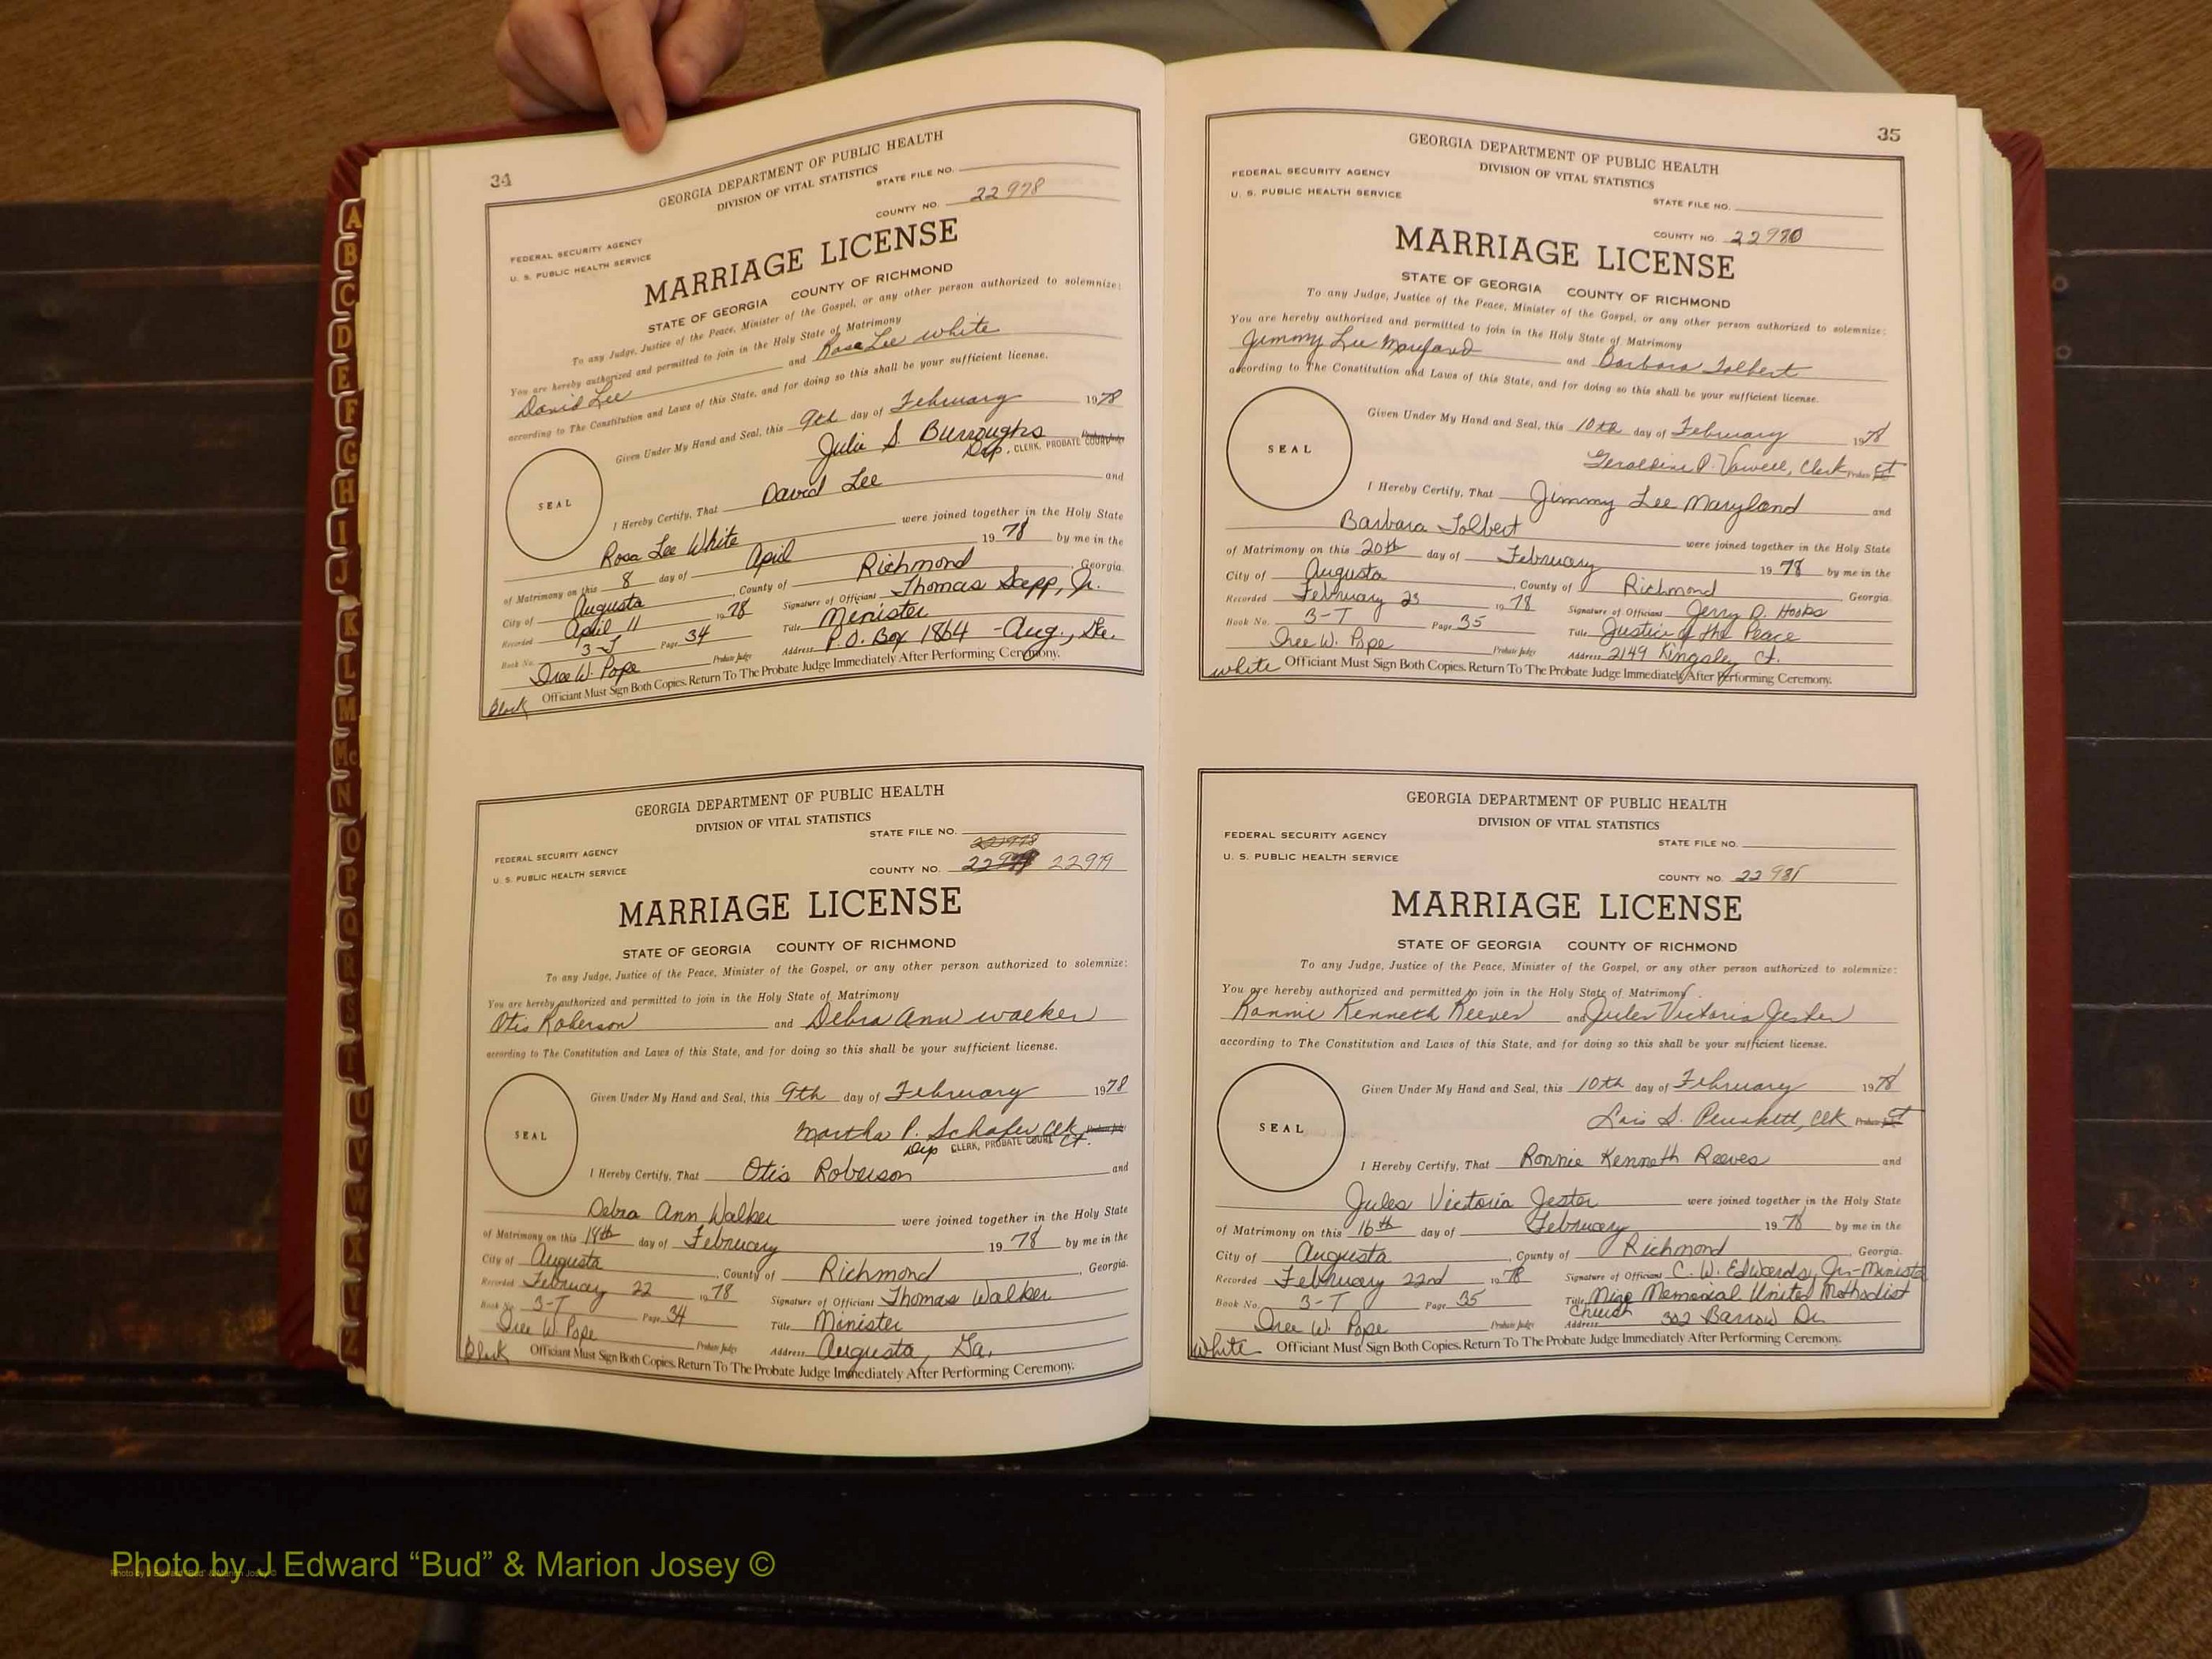 34
GEORGIA DEPARTMENT OF PUBLIC HEALTH
DIVISION OF VITAL STATISTICS
STATE FILE NO.
COUNTY NO. 22978
FEDERAL SECURITY AGENCY
U. S. PUBLIC HEALTH SERVICE
MARRIAGE LICENSE
STATE OF GEORGIA COUNTY OF RICHMOND
To any Judge, Justice of the Peace, Minister of the Gospel, or any other person authorized to solemnize:
You are hereby authorized and permitted to join in the Holy State of Matrimony
David Lee and Rosa Lee White
according to The Constitution and Laws of this State, and for doing so this shall be your sufficient license.
Given Under My Hand and Seal, this 9th day of February 1978
Julie S. Burroughs Probate Judge
Dep. CLERK, PROBATE COURT
SEAL
I Hereby Certify, That David Lee and
Rosa Lee White were joined together in the Holy State
of Matrimony on this 8 day of April 1978 by me in the
City of Augusta, County of Richmond, Georgia.
Recorded April 11 1978 Signature of Officiant Thomas Sapp, Jr.
Book No. 3-T Page 34 Title Minister
Iree W. Pope Probate Judge Address P.O. Box 1864 - Aug., Ga.
Officiant Must Sign Both Copies. Return To The Probate Judge Immediately After Performing Ceremony.
black
GEORGIA DEPARTMENT OF PUBLIC HEALTH
DIVISION OF VITAL STATISTICS
STATE FILE NO.
22978
COUNTY NO. 22979
FEDERAL SECURITY AGENCY
U. S. PUBLIC HEALTH SERVICE
MARRIAGE LICENSE
STATE OF GEORGIA COUNTY OF RICHMOND
To any Judge, Justice of the Peace, Minister of the Gospel, or any other person authorized to solemnize:
You are hereby authorized and permitted to join in the Holy State of Matrimony
Otis Roberson and Debra Ann Walker
according to The Constitution and Laws of this State, and for doing so this shall be your sufficient license.
Given Under My Hand and Seal, this 9th day of February 1978
Martha P. Schafer Clk Probate Judge
Dep CLERK, PROBATE COURT Ct.
SEAL
I Hereby Certify, That Otis Roberson and
Debra Ann Walker were joined together in the Holy State
of Matrimony on this day of February 1978 by me in the
City of Augusta, County of Richmond, Georgia.
Recorded February 22 1978 Signature of Officiant Thomas Walker
Book No. 3-T Page 34 Title Minister
Iree W. Pope Probate Judge Address Augusta, Ga.
Black Officiant Must Sign Both Copies. Return To The Probate Judge Immediately After Performing Ceremony.
35
GEORGIA DEPARTMENT OF PUBLIC HEALTH
DIVISION OF VITAL STATISTICS
FEDERAL SECURITY AGENCY
U. S. PUBLIC HEALTH SERVICE
STATE FILE NO.
COUNTY NO. 22980
MARRIAGE LICENSE
STATE OF GEORGIA COUNTY OF RICHMOND
To any Judge, Justice of the Peace, Minister of the Gospel, or any other person authorized to solemnize:
You are hereby authorized and permitted to join in the Holy State of Matrimony
Jimmy Lee Maryland and Barbara Tolbert
according to The Constitution and Laws of this State, and for doing so this shall be your sufficient license.
Given Under My Hand and Seal, this 10th day of February 1978
Geraldine P. Vowell, Clerk Probate Ct
SEAL
I Hereby Certify, That Jimmy Lee Maryland and
Barbara Tolbert were joined together in the Holy State
of Matrimony on this 20th day of February 1978 by me in the
City of Augusta, County of Richmond, Georgia.
Recorded February 23 1978 Signature of Officiant Jerry D. Hooks
Book No. 3-T Page 35 Title Justice of the Peace
Iree W. Pope Probate Judge Address 2149 Kingsley Ct.
white Officiant Must Sign Both Copies. Return To The Probate Judge Immediately After Performing Ceremony.
GEORGIA DEPARTMENT OF PUBLIC HEALTH
DIVISION OF VITAL STATISTICS
FEDERAL SECURITY AGENCY
U. S. PUBLIC HEALTH SERVICE
STATE FILE NO.
COUNTY NO. 22981
MARRIAGE LICENSE
STATE OF GEORGIA COUNTY OF RICHMOND
To any Judge, Justice of the Peace, Minister of the Gospel, or any other person authorized to solemnize:
You are hereby authorized and permitted to join in the Holy State of Matrimony
Ronnie Kenneth Reeves and Jules Victoria Jester
according to The Constitution and Laws of this State, and for doing so this shall be your sufficient license.
Given Under My Hand and Seal, this 10th day of February 1978
Lois S. Clk Probate Ct
SEAL
I Hereby Certify, That Ronnie Kenneth Reeves and
Jules Victoria Jester were joined together in the Holy State
of Matrimony on this 16th day of February 1978 by me in the
City of Augusta, County of Richmond, Georgia.
Recorded February 22nd 1978 Signature of Officiant C. W. Edwards, Jr-Minister
Book No. 3-T Page 35 Title Memorial United Methodist
Church
Iree W. Pope Probate Judge Address 302 Barrow Dr.
white Officiant Must Sign Both Copies. Return To The Probate Judge Immediately After Performing Ceremony.
A
B
C
D
E
F
G
H
I
J
K
L
M
Mc
N
O
P
Q
R
S
T
U
V
W
X
Y
Z
Photo by J Edward “Bud” & Marion Josey ©
Photo by J Edward “Bud” & Marion Josey ©